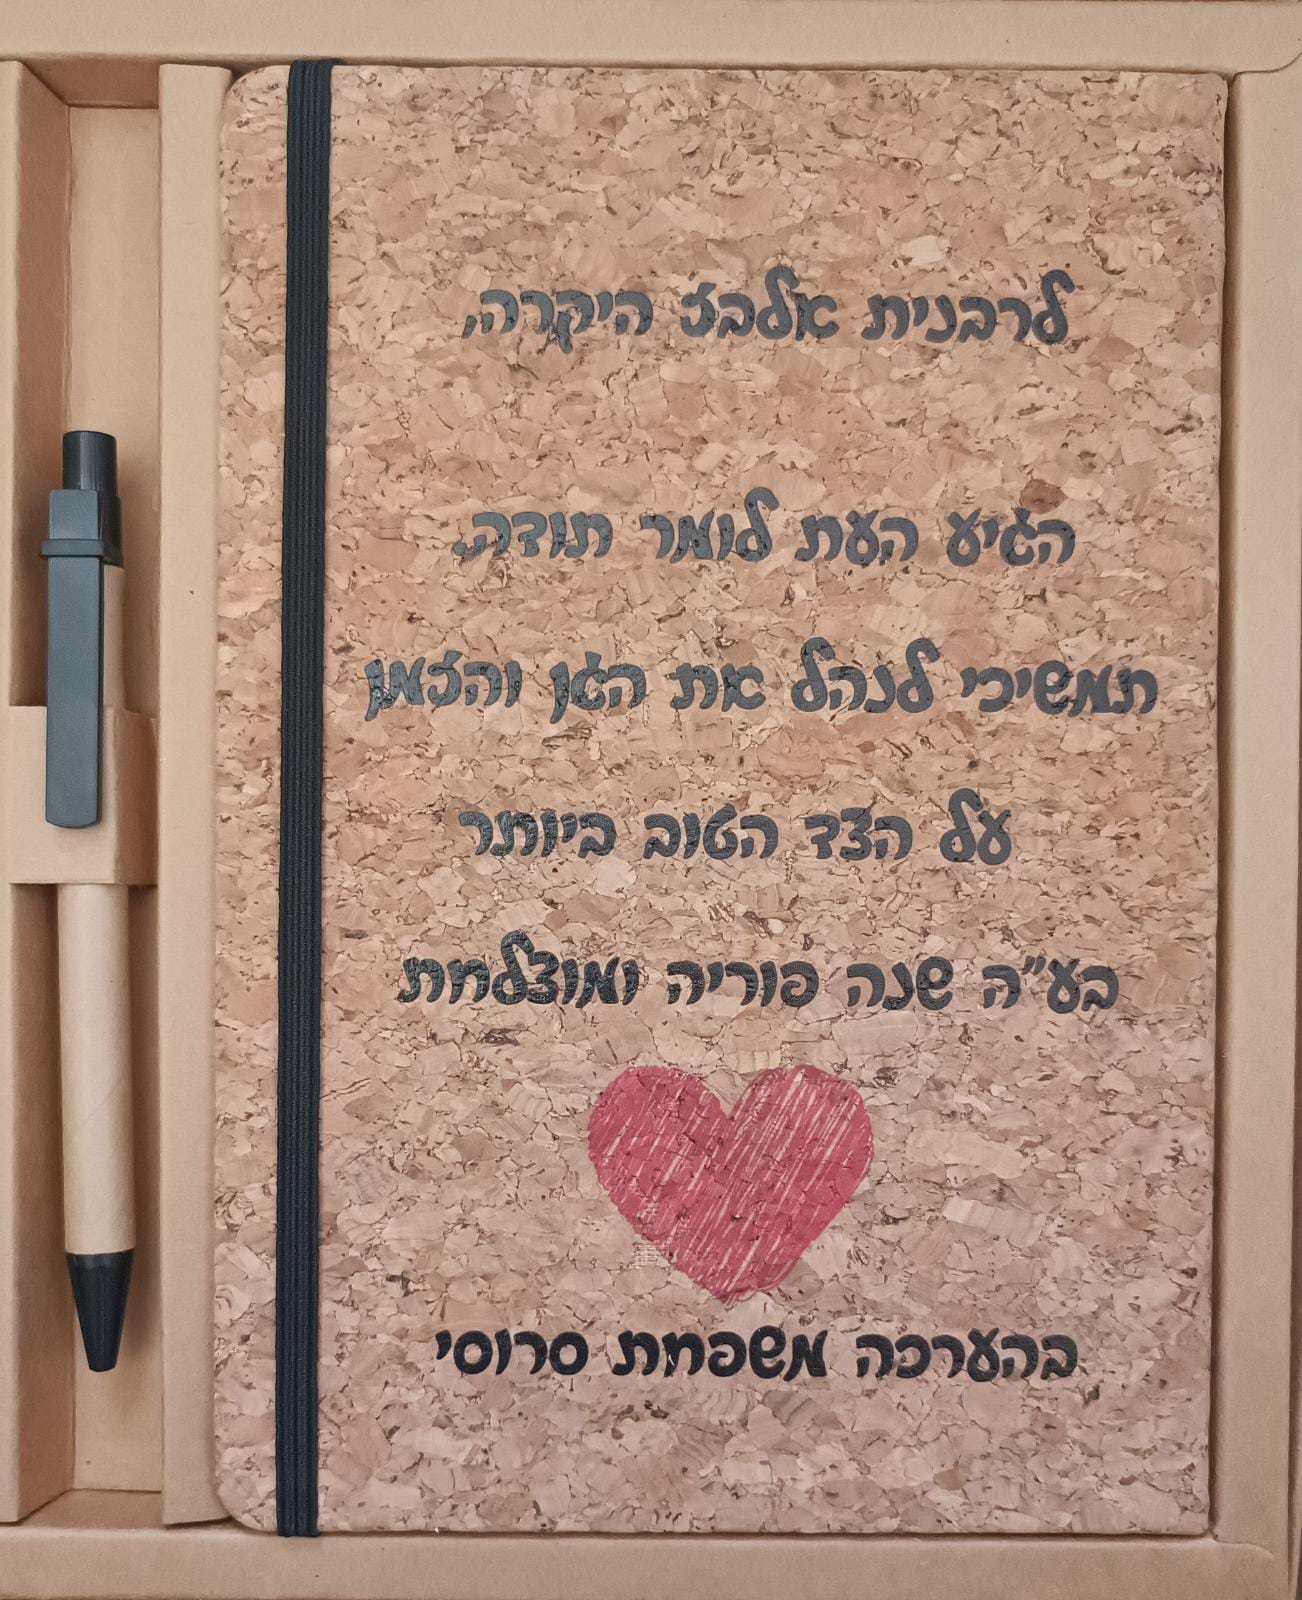 לרבנית אלבז היקרה,
הגיע העת לומר תודה.
תמשיכי לנהל את הגן והזמן
על הצד הטוב ביותר
בע"ה שנה פוריה ומוצלחת
בהערכה משפחת סרוסי